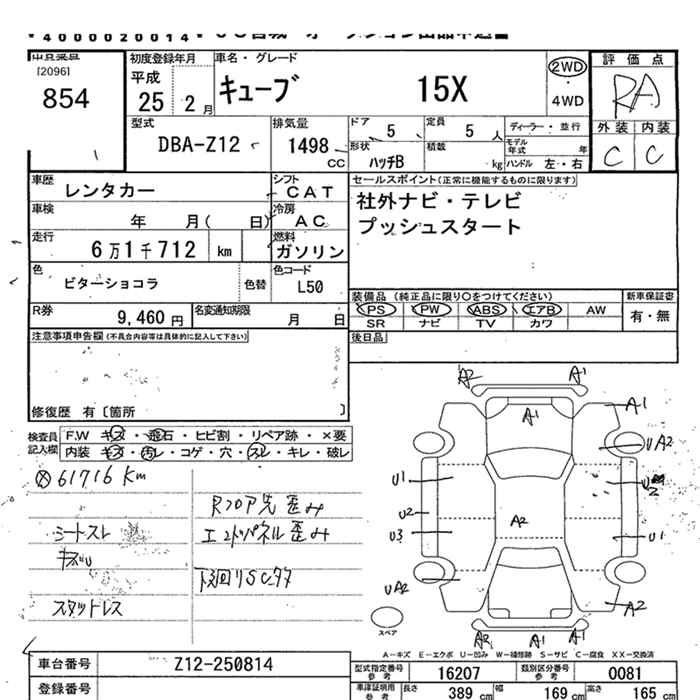 40000020014
[2096]
854
初度登録年月
平成
25 2月
車名・グレード
キューブ 15X
2WD
・
4WD
評価点
RA
外装 内装
C C
型式
DBA-Z12
排気量
1498
CC
ドア
5
定員
5人
ディーラー・並行
形状
ハッチB
積載
kg
モデル年式 年
ハンドル 左・右
車歴
レンタカー
シフト
CAT
車検
年 月( 日)
冷房
AC
走行
6万1千712 km
燃料
ガソリン
色
ビターショコラ
色替
色コード
L50
R券
9,460円
名変通知期限
月 日
セールスポイント(正常に機能するものに限ります)
社外ナビ・テレビ
プッシュスタート
装備品 (純正品に限り〇をつけてください)
PS PW ABS エアB AW
SR ナビ TV カワ
新車保証書
有・無
後日品
注意事項申告欄(不具合内容等は具体的に記入して下さい)
修復歴 有〔箇所 〕
検査員
記入欄
F.W キズ・飛石・ヒビ割・リペア跡・×要
内装 キズ・汚レ・コゲ・穴・スレ・キレ・破レ
61716 Km
Rフロア先 歪み
シートスレ
エンドパネル歪み
キズU
下回リSCサ
スタットレス
A2 A1
A1
A1
UA2
U1
U2
U2
A2
U3
U1
UA2
A2
A2 A1 A1
スペア
A－キズ E－エクボ U－凹ミ W－補修跡 S－サビ C－腐食 XX－交換済
車台番号
Z12-250814
登録番号
型式指定番号
参考
16207
類別区分番号
参考
0081
車庫証明用
参考
長さ
389 cm
幅
169 cm
高さ
165 cm